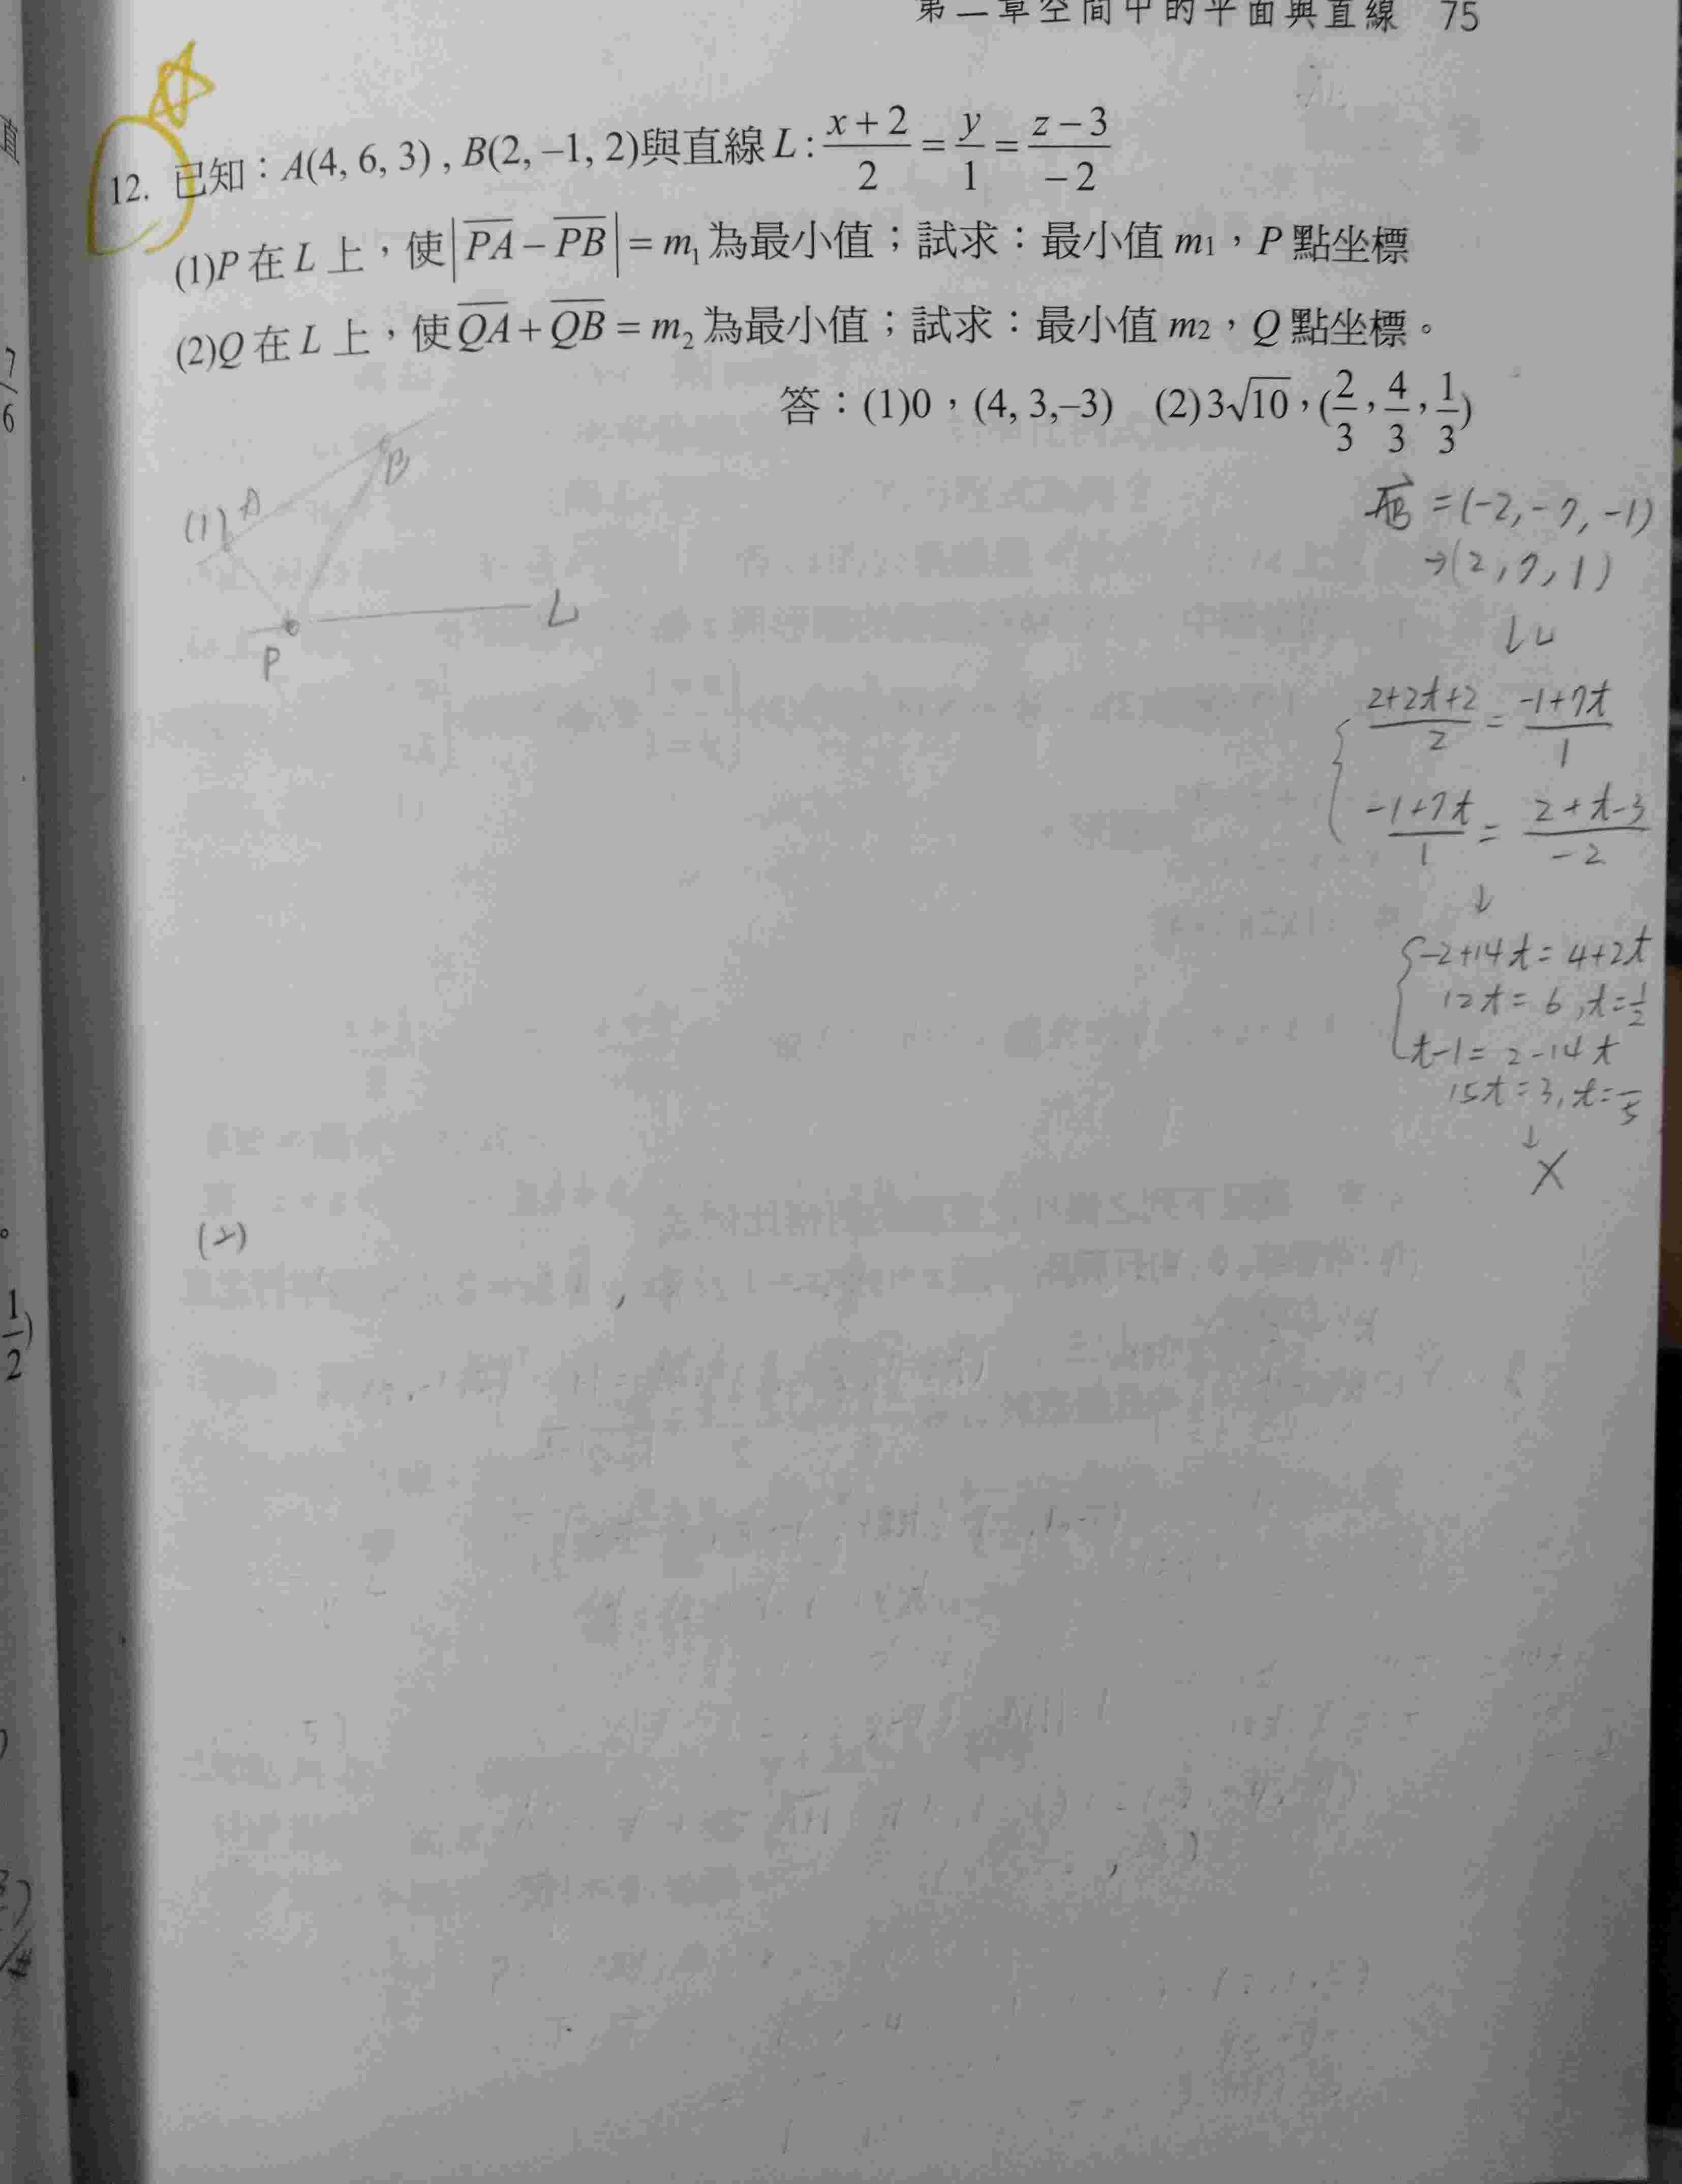 第二章空間中的平面與直線 75
12. 已知：A(4, 6, 3) , B(2, –1, 2)與直線 L : \frac{x+2}{2} = \frac{y}{1} = \frac{z-3}{-2}
(1)P 在 L 上，使|\overline{PA} – \overline{PB}| = m₁ 為最小值；試求：最小值 m₁，P 點坐標
(2)Q 在 L 上，使\overline{QA} + \overline{QB} = m₂ 為最小值；試求：最小值 m₂，Q 點坐標。
答：(1)0，(4, 3,–3) (2)3√10，(\frac{2}{3}，\frac{4}{3}，\frac{1}{3})
(1) A B
P L
\overrightarrow{AB} = (-2, -7, -1)
→(2, 7, 1)
\frac{2+2t+2}{2} = \frac{-1+7t}{1}
\frac{-1+7t}{1} = \frac{2+t-3}{-2}
↓
-2+14t = 4+2t
12t = 6, t = \frac{1}{2}
t-1 = 2-14t
15t = 3, t = \frac{1}{5}
↓
X
(2)
7
6
\frac{1}{2})